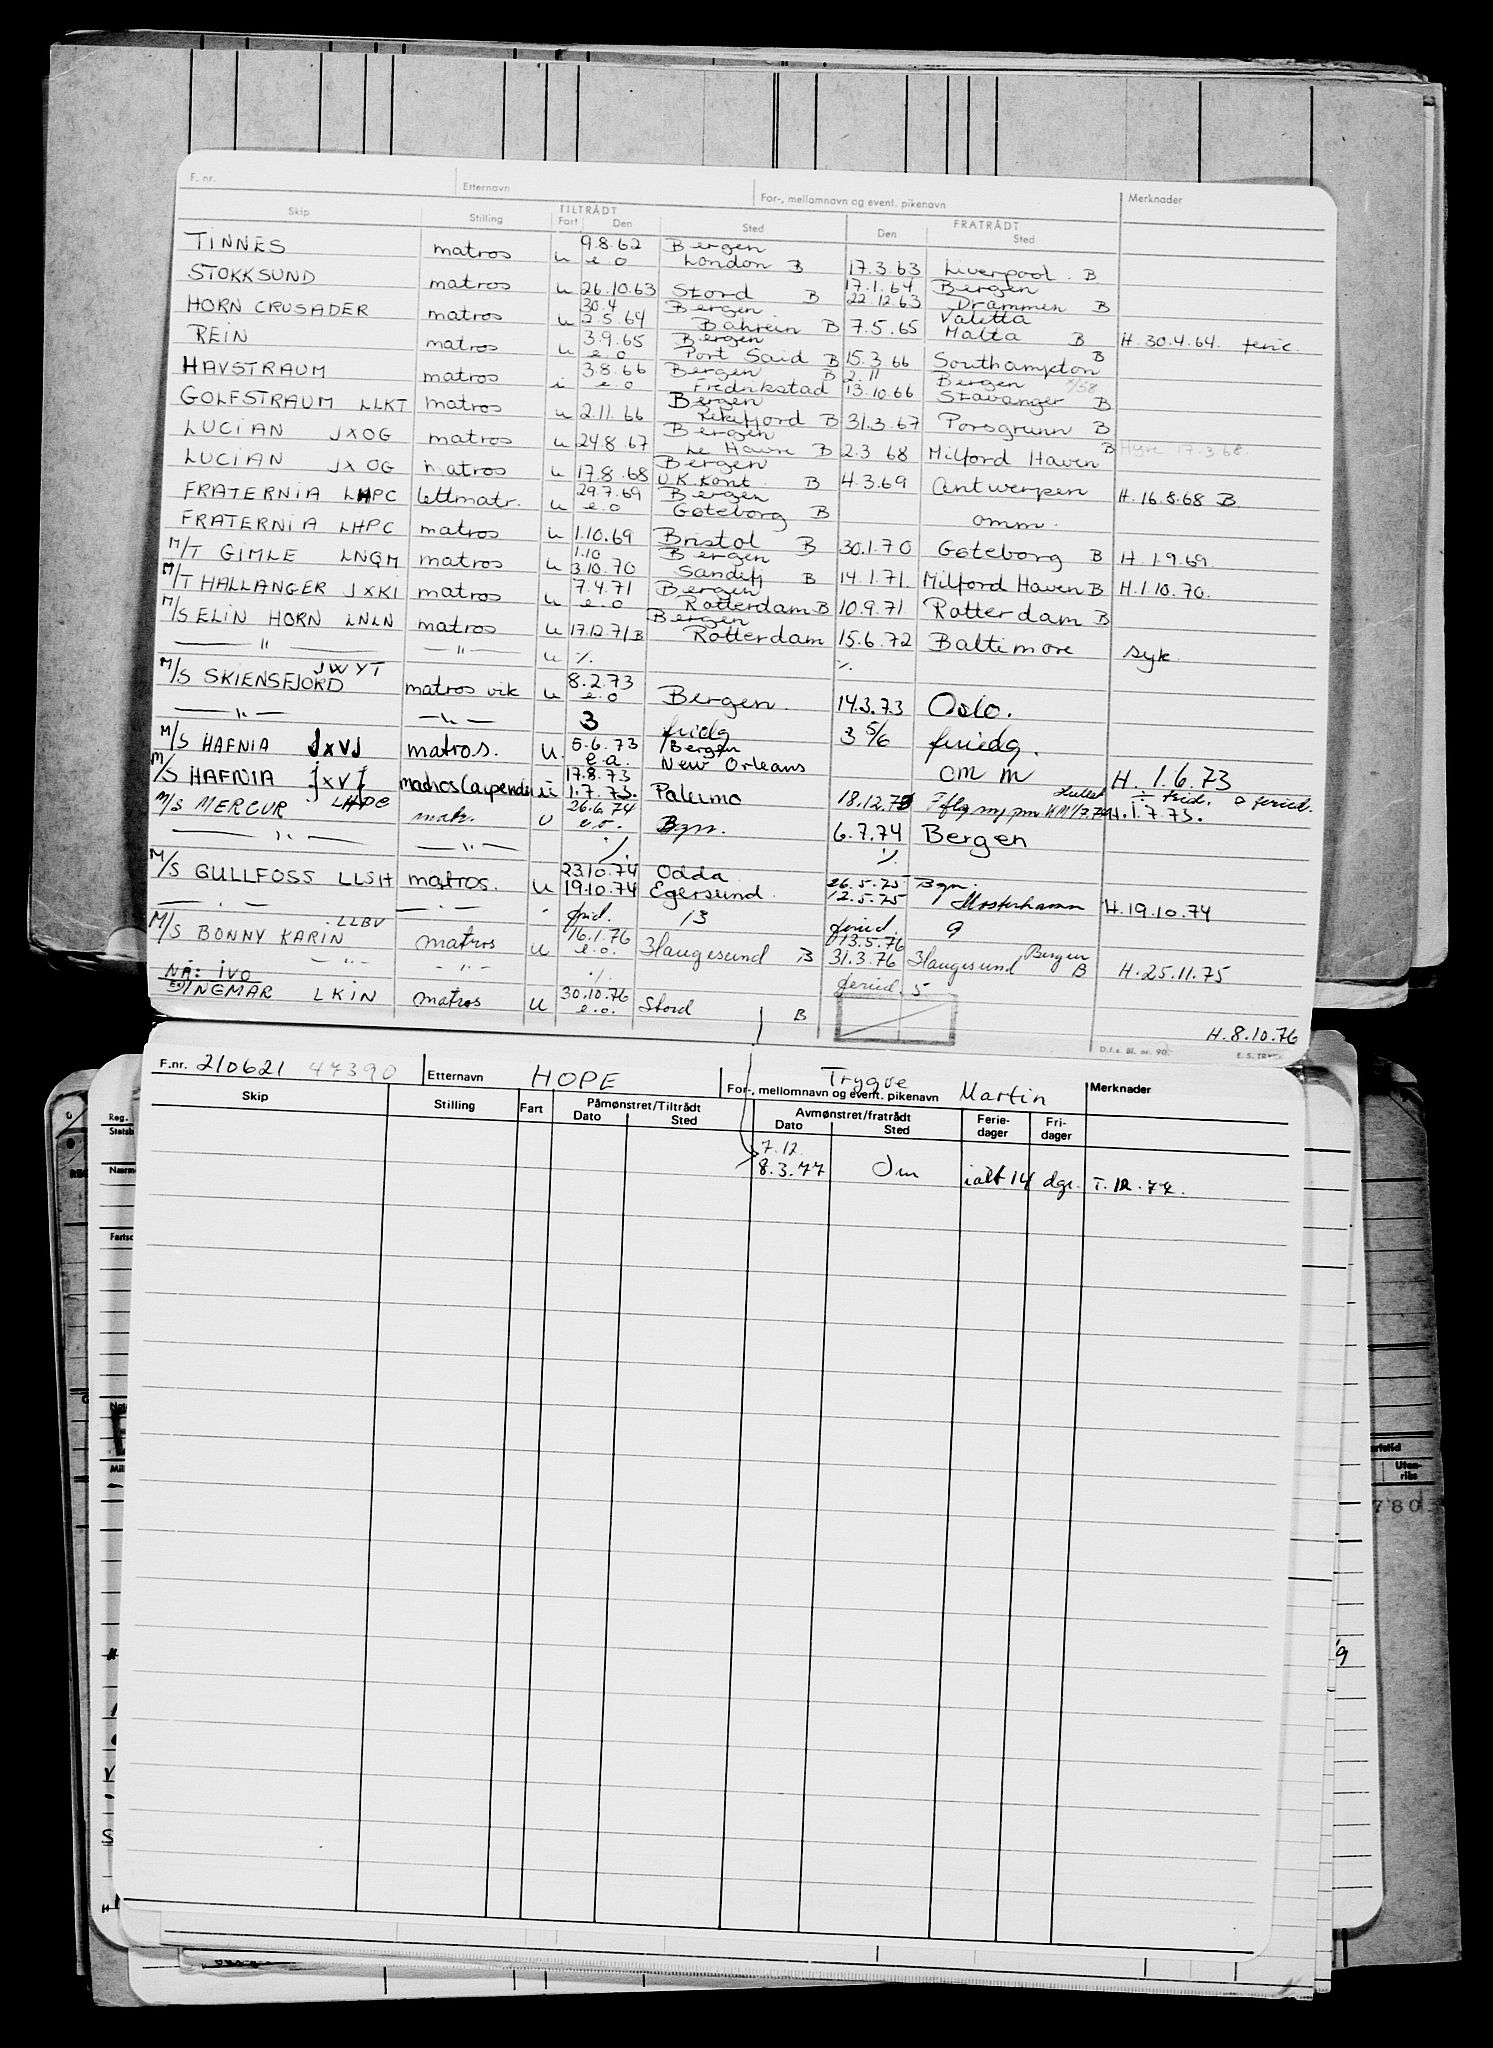 F. nr. Etternavn For-, mellomnavn og event. pikenavn Merknader
Skip Stilling TILTRÅDT Fart Den Sted Den FRATRÅDT Sted
TINNES matros u 9.8.62 e.o Bergen London B 17.3.63 Liverpool B
STOKKSUND matros u 26.10.63 Stord B 17.1.64 22.12.63 Bergen Drammen B
HORN CRUSADER matros u 30.4 2.5.64 Bergen Bahrein B 7.5.65 Valetta Malta B H. 30.4.64. feric.
REIN matros u 3.9.65 e.o Bergen Port Said B 15.3.66 Southampton B
HAVSTRAUM matros i 3.8.66 e.o Bergen B Fredrikstad 2.11 13.10.66 Bergen Stavanger B
GOLFSTRAUM LLKT matros u 2.11.66 Bergen Rekefjord B 31.3.67 Porsgrunn B
LUCIAN JXOG matros u 24.8.67 Bergen Le Havre B 2.3 68 Milford Haven B Hyre 17.3.68.
LUCIAN JXOG matros u 17.8.68 Bergen U.K. Kont. B 4.3.69 Antwerpen H. 16.8.68 B
FRATERNIA LHPC lettmatr. u 29.7.69 e.o Bergen Gøteborg B omm.
FRATERNIA LHPC matros u 1.10.69 Bristol B 30.1.70 Gøteborg B H. 1.9.69
M/T GIMLE LNQM matros u 1.10 3.10.70 Bergen Sandefj B 14.1.71. Milford Haven B H. 1.10.70.
M/T HALLANGER JXKI matros u 7.4.71 e.o Bergen Rotterdam B 10.9.71 Rotterdam B
M/S ELIN HORN LNLN matros u 17.12.71 B Bergen Rotterdam 15.6.72 Baltimore syk.
— " — — " — u ./. ./.
M/S SKIENSFJORD JWYT matros vik u 8.2.73 e.o Bergen. 14.3.73 Oslo.
— " — — " — 3 fridg 3 5/6 feriedg.
M/S HAFNIA JXVJ matros. u. 5.6.73 e.o. Bergen New Orleans om m H. 1.6.73
M/S HAFNIA JXVJ u 17.8.73 1.7.73. Palermo 18.12.73 H. 1.7.73.
M/S MERCUR LHDC matr. u 26.6.74 e.o. Bgn. 6.7.74 Bergen
— " — — " — ./. ./.
M/S GULLFOSS LLSH matros. u 23.10.74 19.10.74 Odda Egersund. 26.5.75 12.5.75 Bgn. Mosterhamn H. 19.10.74
— " — — " — frid. 13 feried. 9
M/S BONNY KARIN LLBV matros u 16.1.76 e.o. Haugesund B 13.5.76 31.3.76 Haugesund Bergen B H. 25.11.75
— " — — " — ./. feried. 5
NÅ: IVO
INGMAR LKIN matros u 30.10.76 e.o. Stord B H. 8.10.76
D.f.s. Bl. nr. 90.
F.nr. 210621 47390 Etternavn HOPE For-, mellomnavn og event. pikenavn Trygve Martin Merknader
Skip Stilling Fart Påmønstret/Tiltrådt Dato Sted Avmønstret/fratrådt Dato Sted Ferie-dager Fri-dager
7.12.
8.3.77 Om ialt 14 dgr. T. 12.77.